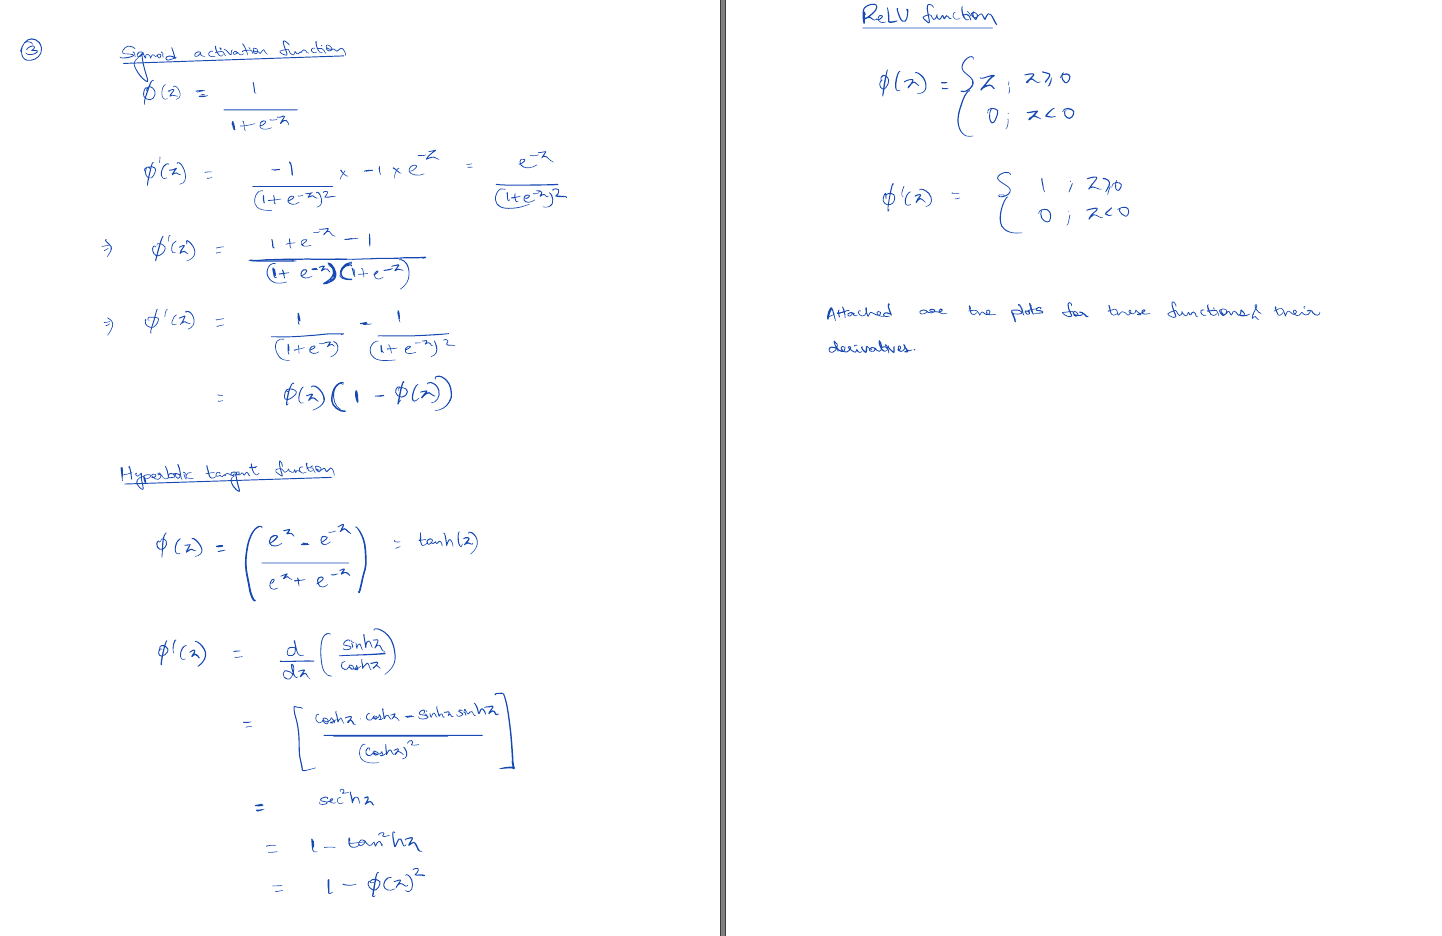 ③ Sigmoid activation function
ϕ(z) = 1 / (1+e^-z)
ϕ'(z) = -1 / (1+e^-z)^2 × -1 × e^-z = e^-z / (1+e^-z)^2
⇒ ϕ'(z) = (1+e^-z - 1) / ((1+e^-z)(1+e^-z))
⇒ ϕ'(z) = 1 / (1+e^-z) - 1 / (1+e^-z)^2
= ϕ(z)(1 - ϕ(z))
Hyperbolic tangent function
ϕ(z) = ((e^z - e^-z) / (e^z + e^-z)) = tanh(z)
ϕ'(z) = d/dz (sinhz / coshz)
= [(coshz · coshz - sinhz sinhz) / (coshz)^2]
= sec^2hz
= 1 - tan^2hz
= 1 - ϕ(z)^2
ReLU function
ϕ(z) = { z ; z≥0
0 ; z<0
ϕ'(z) = { 1 ; z≥0
0 ; z<0
Attached are the plots for these functions & their
derivatives.